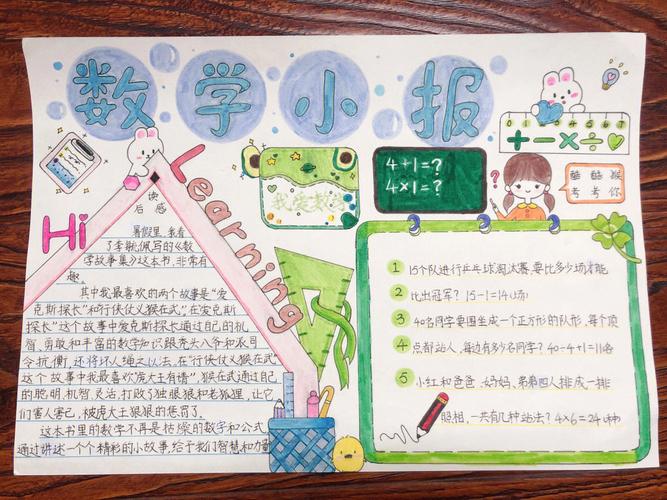 数学小报
Hi
Learning
读
后感
我爱数学
4+1=?
4×1=?
0 1 2 3 4 5 6 7
+ − × ÷
酷酷猴
考考你
暑假里,我看
了李毓佩写的《数
学故事集》这本书,非常有
趣。
其中我最喜欢的两个故事是“爱
克斯探长”和“行侠仗义猴在武”,在“爱克斯
探长”这个故事中爱克斯探长通过自己的机
智,勇敢和丰富的数学知识跟秃头八爷和
令抗衡,还将坏人绳之以法,在“行侠仗义猴在武”
这个故事中我最喜欢“虎大王有情”,猴在武通过自己
的聪明,机智,灵活,打败了独眼狼和老狐狸,让它
们害人害己,被虎大王狠狠的惩罚了。
这本书里的数学不再是枯燥的数字和公式,
通过讲述一个个精彩的小故事,给予我们智慧和力量
1 15个队进行乒乓球淘汰赛,要比多少场才能
2 比出冠军? 15-1=14(场)
3 40名同学要围坐成一个正方形的队形,每个顶
4 点都站人,每边有多少名同学? 40÷4+1=11名
5 小红和爸爸、妈妈、弟弟四人排成一排
照相,一共有几种站法? 4×6=24(种)